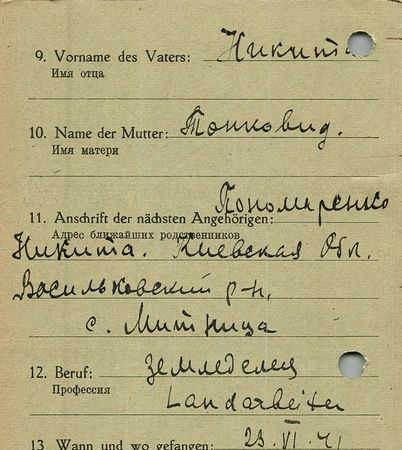 9. Vorname des Vaters: Никита
Имя отца
10. Name der Mutter: Тонковид.
Имя матери
Пономаренко
11. Anschrift der nächsten Angehörigen:
Адрес ближайших родственников
Никита. Киевская Обл.
Васильковский р-н,
с. Митница
12. Beruf: Земледелец
Профессия
Landarbeiter
13 Wann und wo gefangen: 23. VI. 41